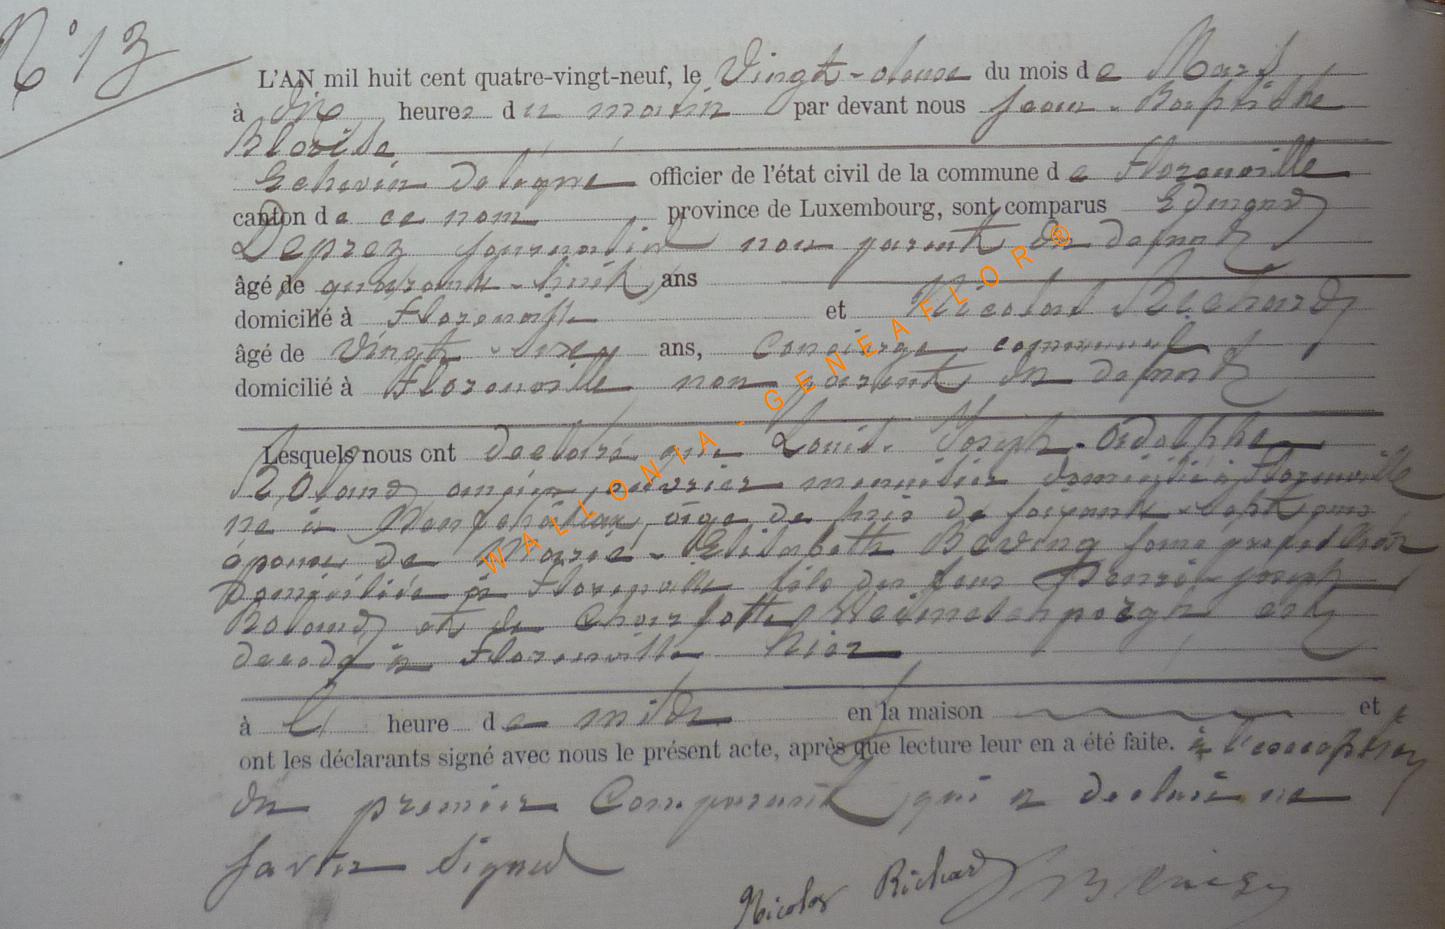 N° 13
L'AN mil huit cent quatre-vingt-neuf, le Vingt-deux du mois de Mars
à dix heures du matin par devant nous Jean-Baptiste
Echevin délégué officier de l'état civil de la commune de Florenville
canton de ce nom province de Luxembourg, sont comparus Edmond
Deprez journalier non parent du defunt
âgé de quarante-huit ans
domicilié à Florenville et Nicolas Richard
âgé de Vingt-six ans, Concierge communal
domicilié à Florenville non parent du defunt
Lesquels nous ont declaré que Louis-Joseph-Adolphe
Roland ancien ouvrier menuisier domicilié à Florenville
né à Neufchâteau, âgé de près de soixante-sept ans
époux de Marie-Elisabeth Beving
Domiciliée à Florenville fils des feux Henri-Joseph
Roland et de Charlotte est
decedé à Florenville hier
à heure de midi en la maison et
ont les déclarants signé avec nous le présent acte, après que lecture leur en a été faite. à l'exception
du premier Comparant qui a declaré ne
savoir signer
Nicolas Richard
WALLONIA - GENEAFLOR ®